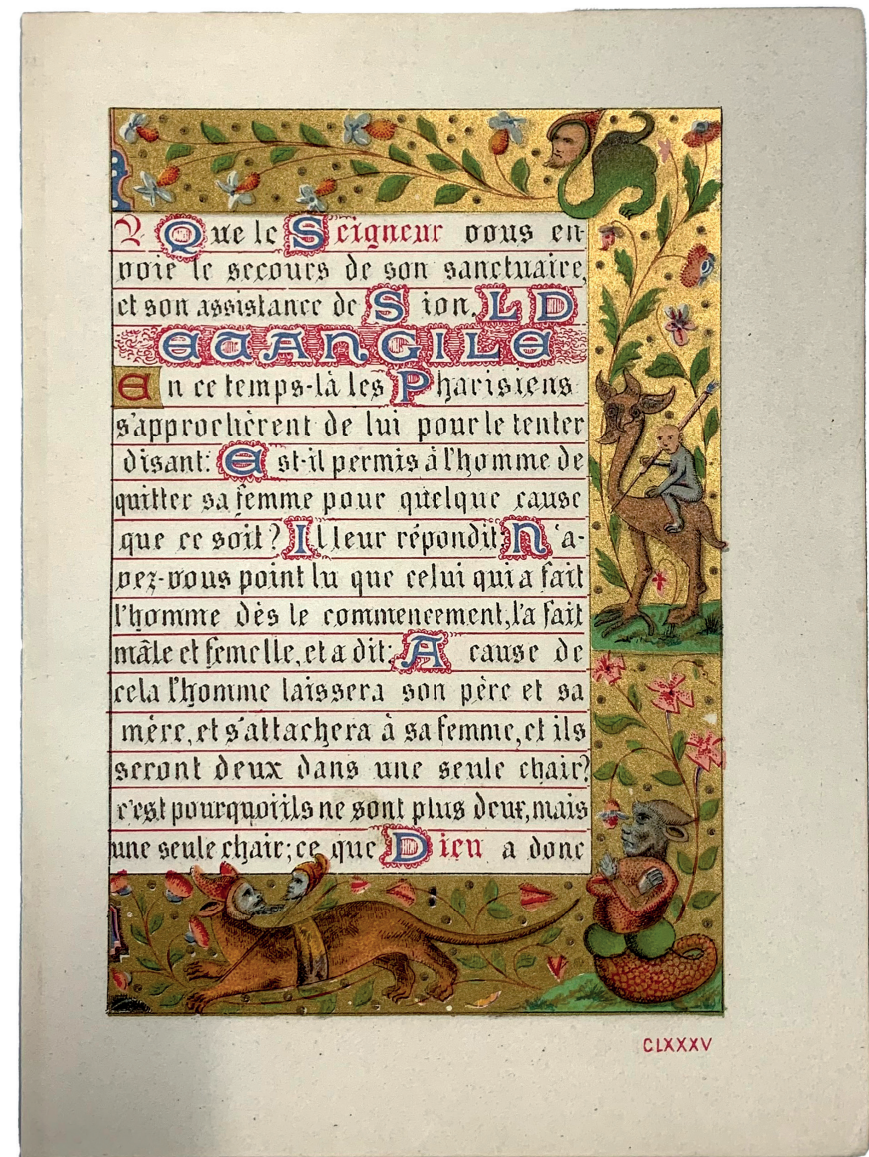 ℣ Que le Seigneur vous en-
voie le secours de son sanctuaire,
et son assistance de Sion. L D
EVANGILE
En ce temps-là les Pharisiens
s'approchèrent de lui pour le tenter
disant: Est-il permis à l'homme de
quitter sa femme pour quelque cause
que ce soit? Il leur répondit: N'a-
vez-vous point lu que celui qui a fait
l'homme dès le commencement, l'a fait
mâle et femelle, et a dit: A cause de
cela l'homme laissera son père et sa
mère, et s'attachera à sa femme, et ils
seront deux dans une seule chair?
c'est pourquoi ils ne sont plus deux, mais
une seule chair; ce que Dieu a donc
CLXXXV